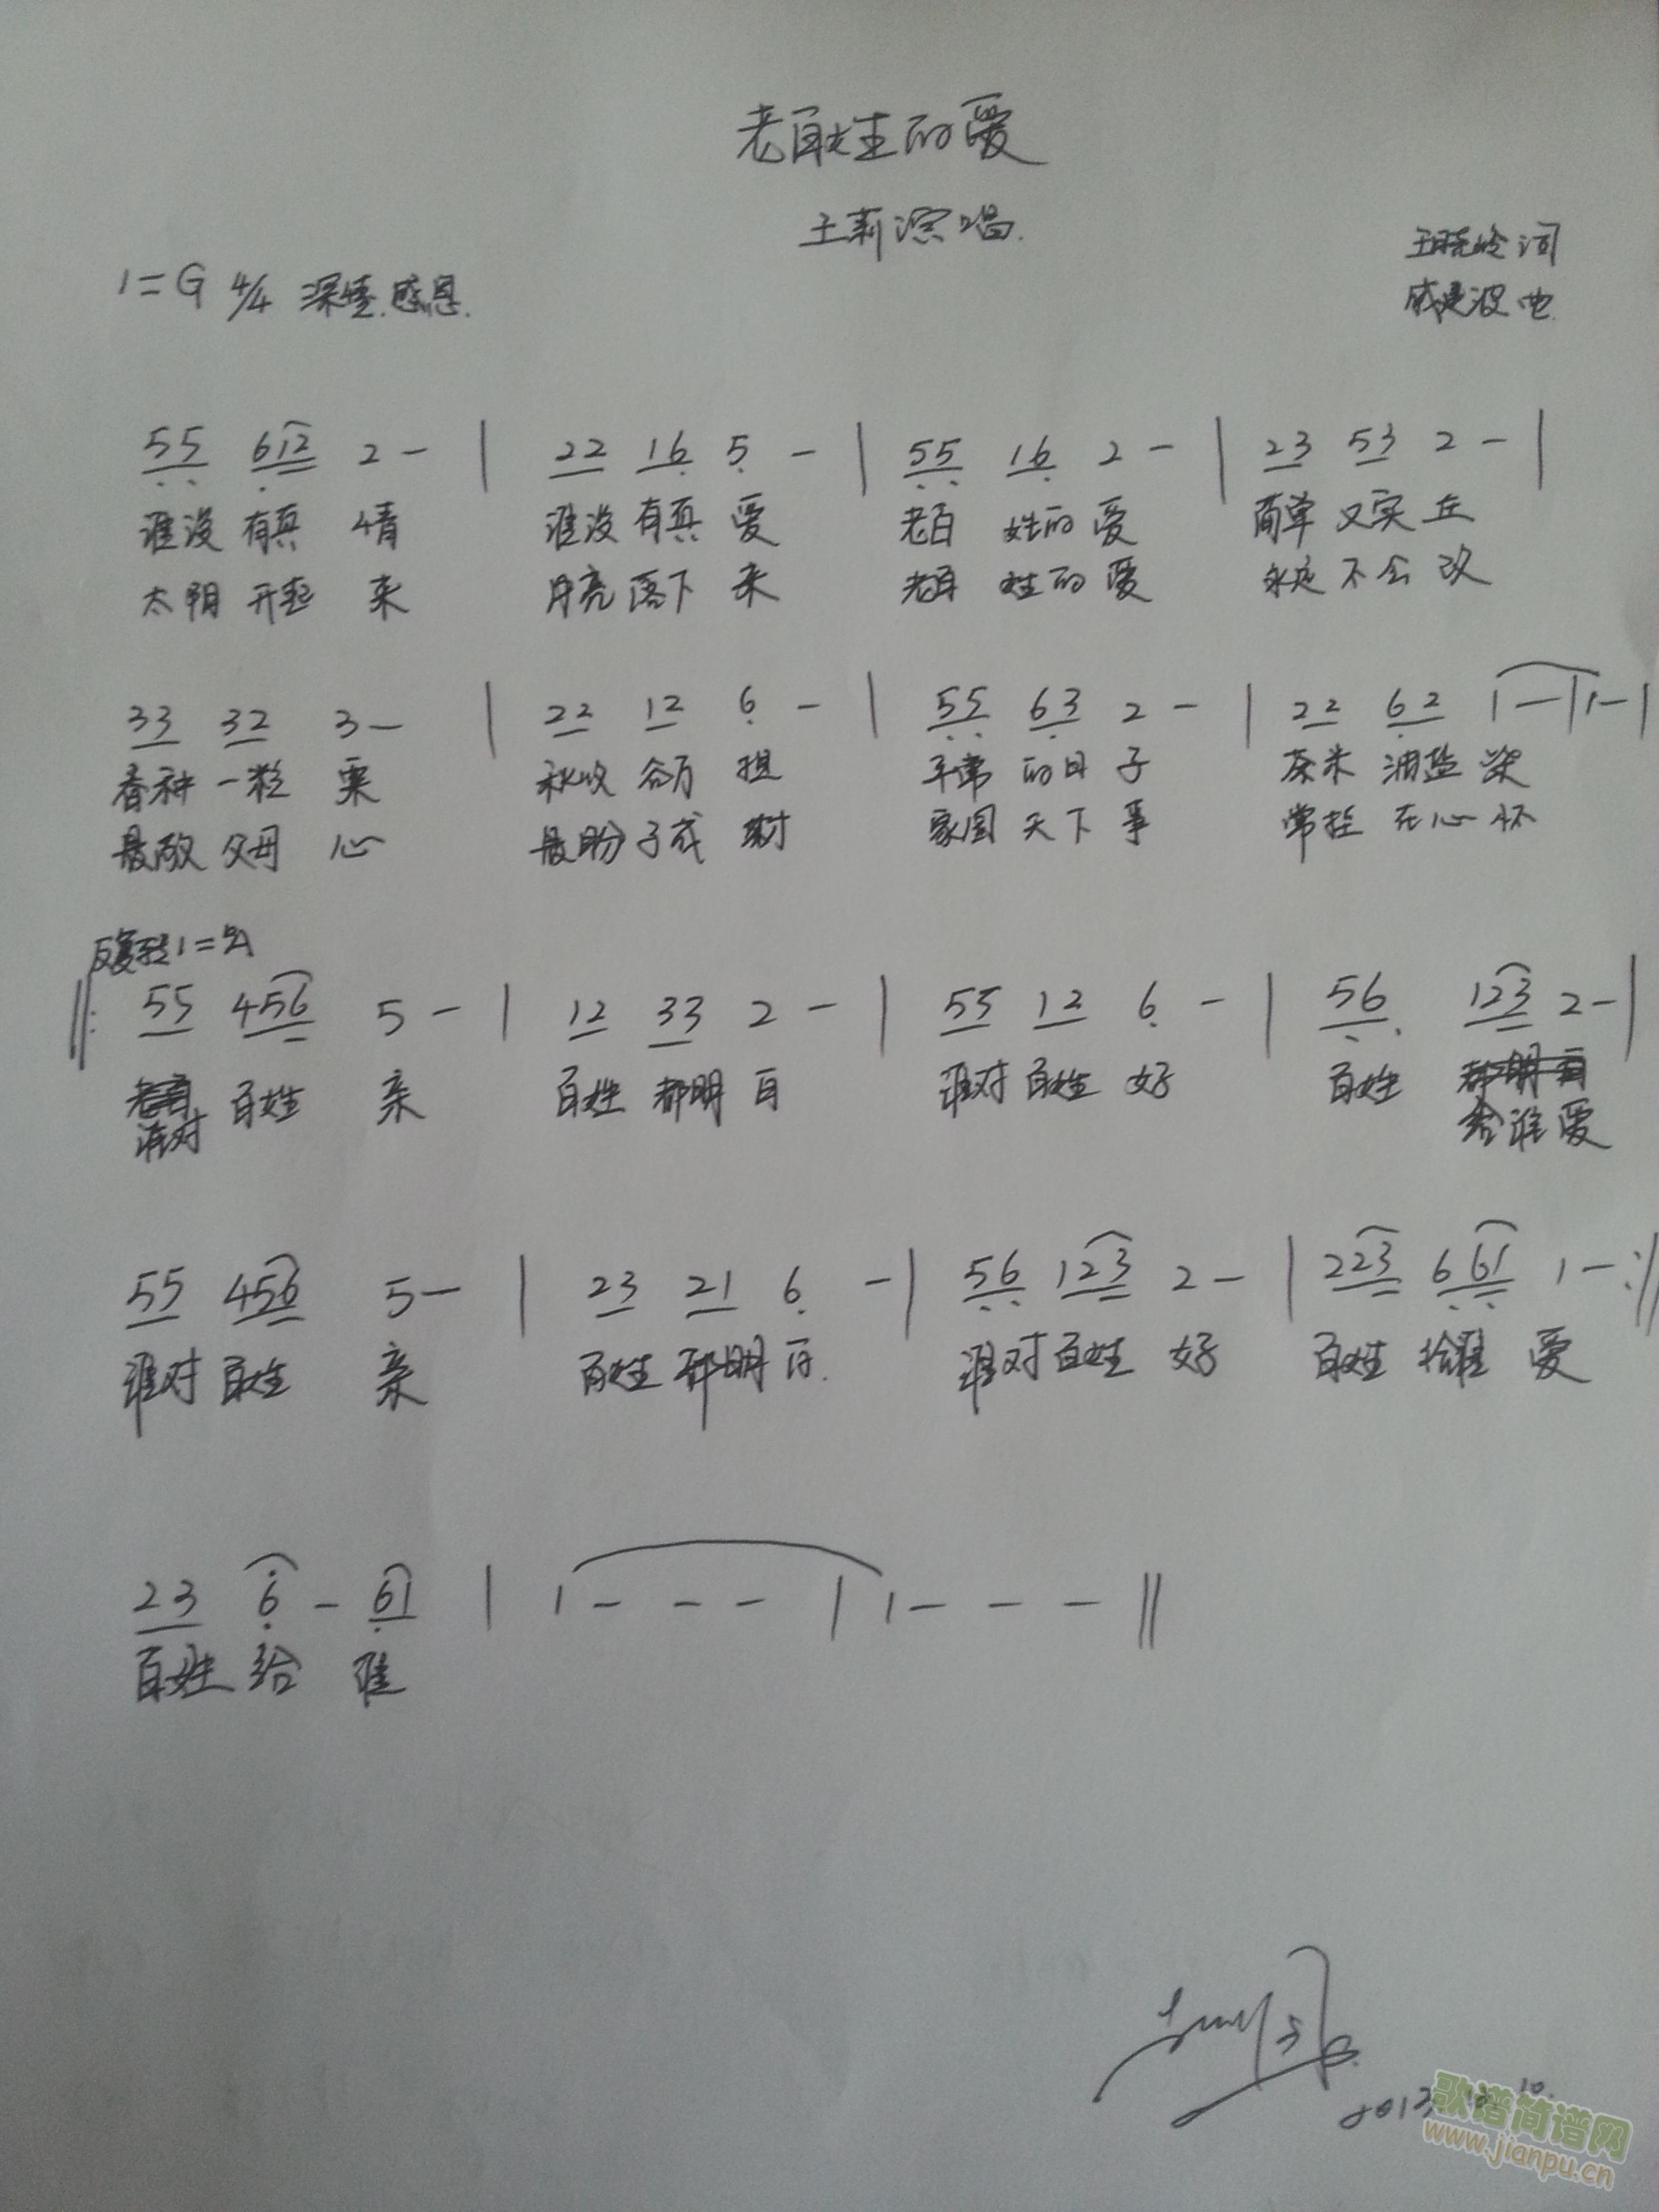 老百姓的爱
王莉演唱.
王晓岭 词
戚建波 曲
1=G 4/4 深情.感恩.
55 612 2 - | 22 16 5 - | 55 16 2 - | 23 53 2 - |
谁没 有真 情 谁没 有真 爱 老百 姓的 爱 简单 又实 在
太阳 升起 来 月亮 落下 来 老百 姓的 爱 永远 不会 改
33 32 3 - | 22 12 6 - | 55 63 2 - | 22 62 1 - | 1 - |
春种 一粒 粟 秋收 谷万 担 平常 的日 子 茶米 油盐 柴
最敬 父母 心 最盼 子成 材 家国 天下 事 常挂 在心 怀
反复转1=♭A
‖: 55 456 5 - | 12 33 2 - | 55 12 6 - | 56 123 2 - |
百姓 亲 百姓 都明 白 谁对 百姓 好 百姓 都明白
谁对 给谁爱
55 456 5 - | 23 21 6 - | 56 123 2 - | 223 661 1 - :‖
谁对 百姓 亲 百姓 都明 白. 谁对 百姓 好 百姓 给谁 爱
23 6 - 61 | 1 - - - | 1 - - - ‖
百姓 给 谁
2013 10.
歌谱简谱网
www.jianpu.cn